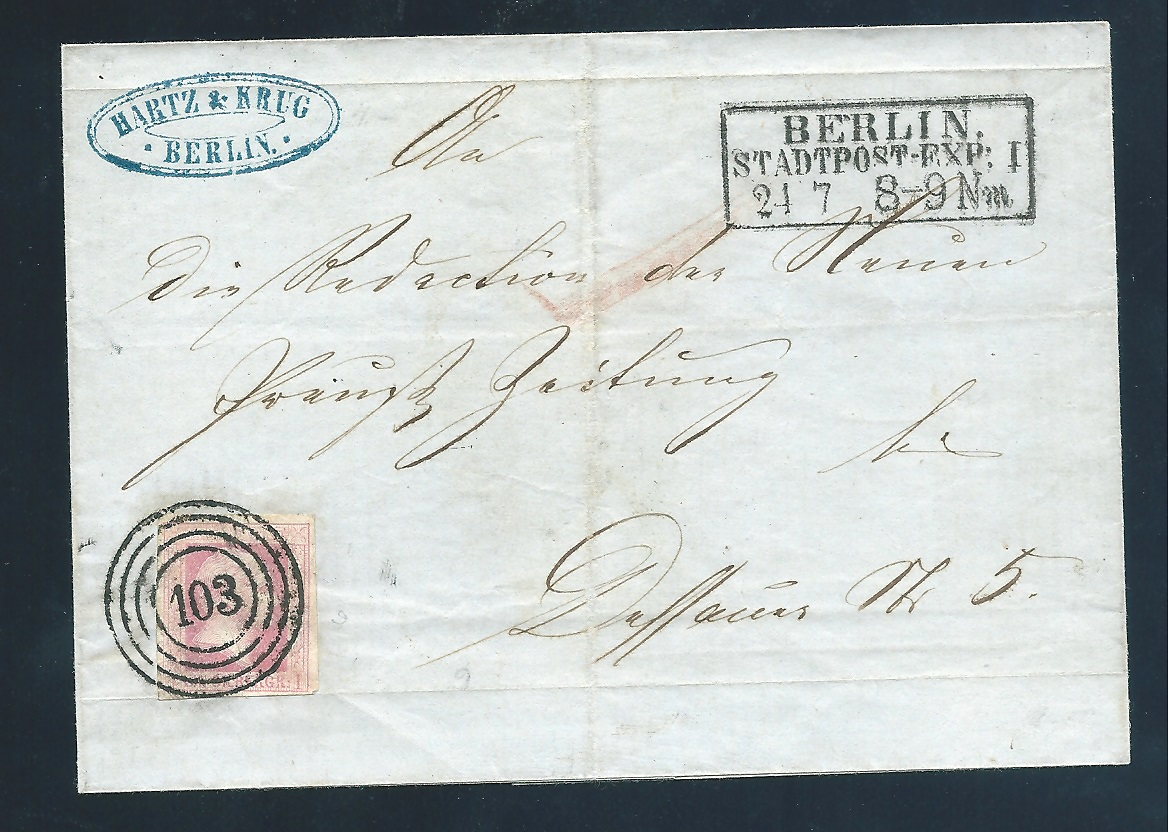 HARTZ & KRUG
· BERLIN. ·
BERLIN.
STADTPOST-EXP: I
24 7 8-9 Nm
An
die Redaction der Neuen
Preuß Zeitung
hie
Dessauer Str 5.
103
SILBERGR: 1